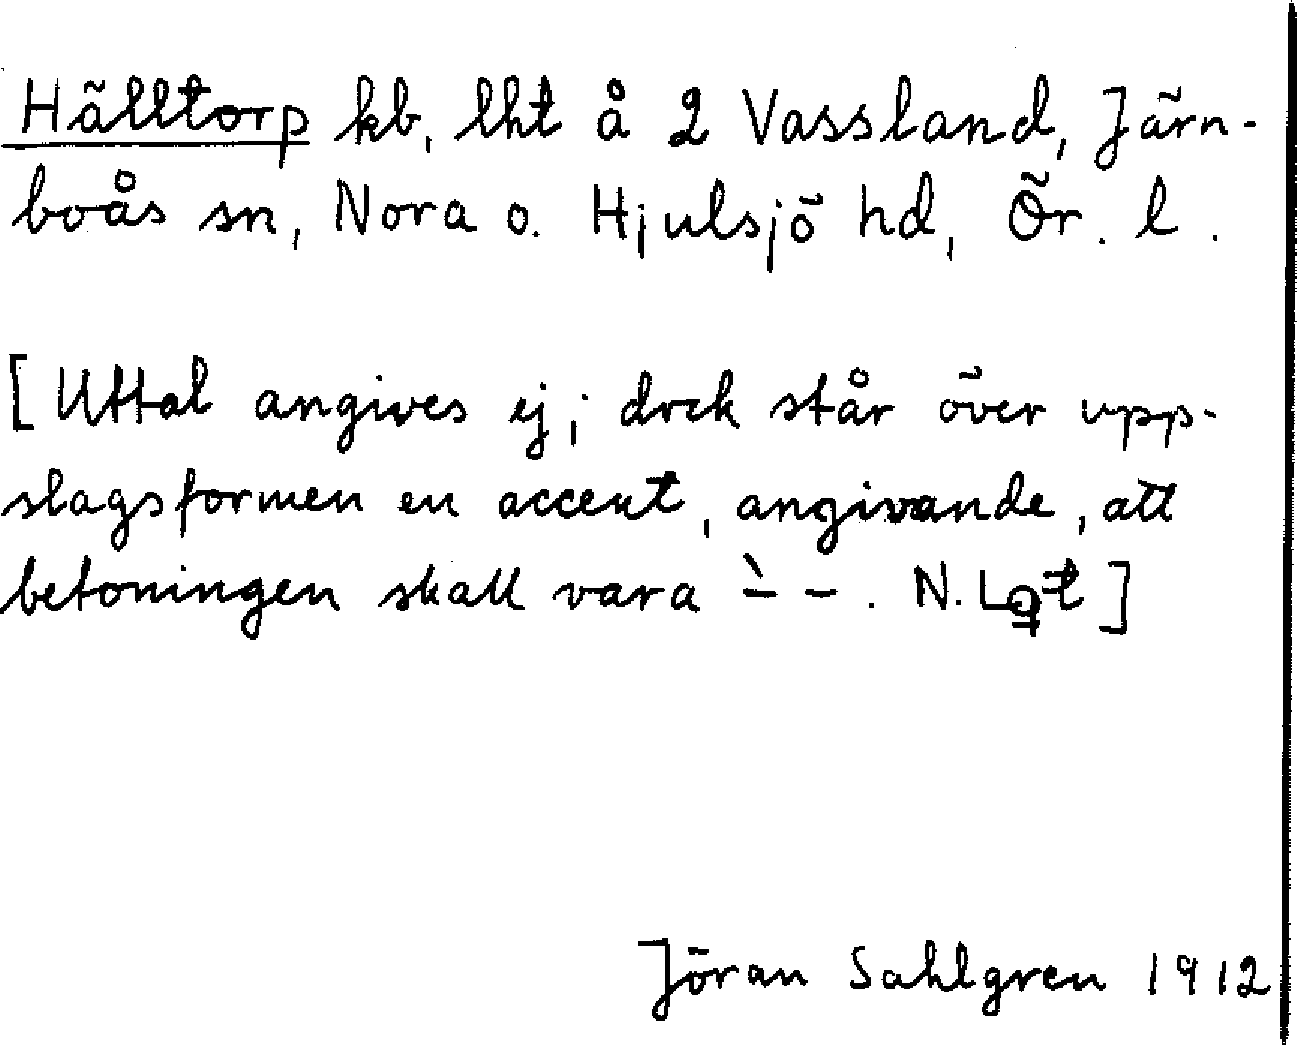 Hälltorp kb, lht å 2 Vassland, Järn-
boås sn, Nora o. Hjulsjö hd, Ör. l.
[Uttal angives ej; dock står över upp-
slagsformen en accent, angivande, att
betoningen skall vara `– –. N. Lgt]
Jöran Sahlgren 1912